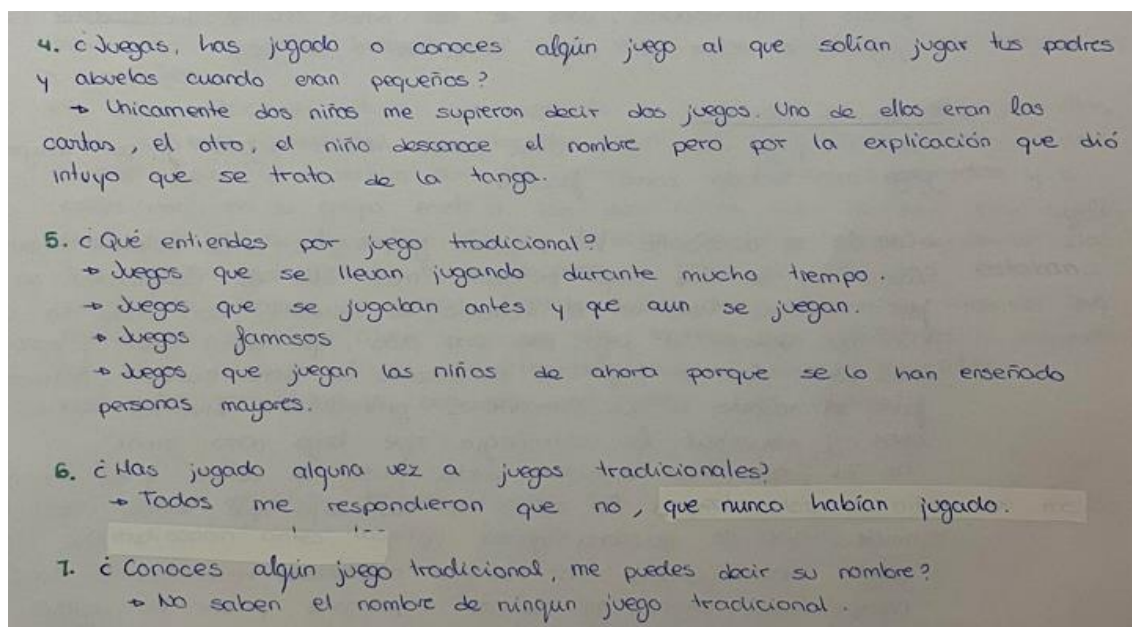 4. ¿Juegas, has jugado o conoces algún juego al que solían jugar tus padres
y abuelos cuando eran pequeños?
→ Unicamente dos niños me supieron decir dos juegos. Uno de ellos eran las
cartas, el otro, el niño desconoce el nombre pero por la explicación que dió
intuyo que se trata de la tanga.
5. ¿Qué entiendes por juego tradicional?
→ Juegos que se llevan jugando durante mucho tiempo.
→ Juegos que se jugaban antes y que aun se juegan.
→ Juegos famosos
→ Juegos que juegan los niños de ahora porque se lo han enseñado
personas mayores.
6. ¿Has jugado alguna vez a juegos tradicionales?
→ Todos me respondieron que no, que nunca habían jugado.
7. ¿Conoces algún juego tradicional, me puedes decir su nombre?
→ No saben el nombre de ningun juego tradicional.